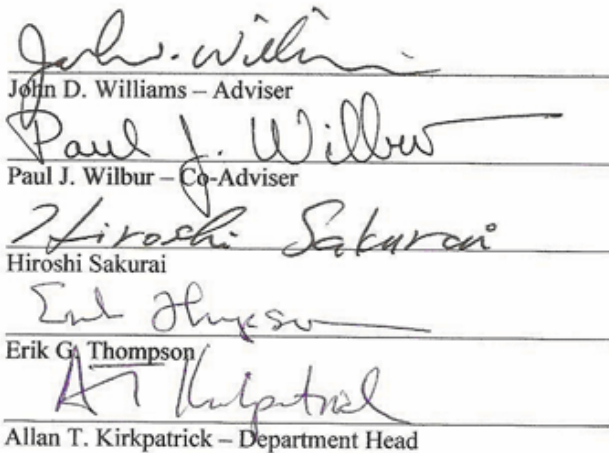 John D. Williams
John D. Williams – Adviser
Paul J. Wilbur
Paul J. Wilbur – Co-Adviser
Hiroshi Sakurai
Hiroshi Sakurai
Erik Thompson
Erik G. Thompson
AT Kirkpatrick
Allan T. Kirkpatrick – Department Head